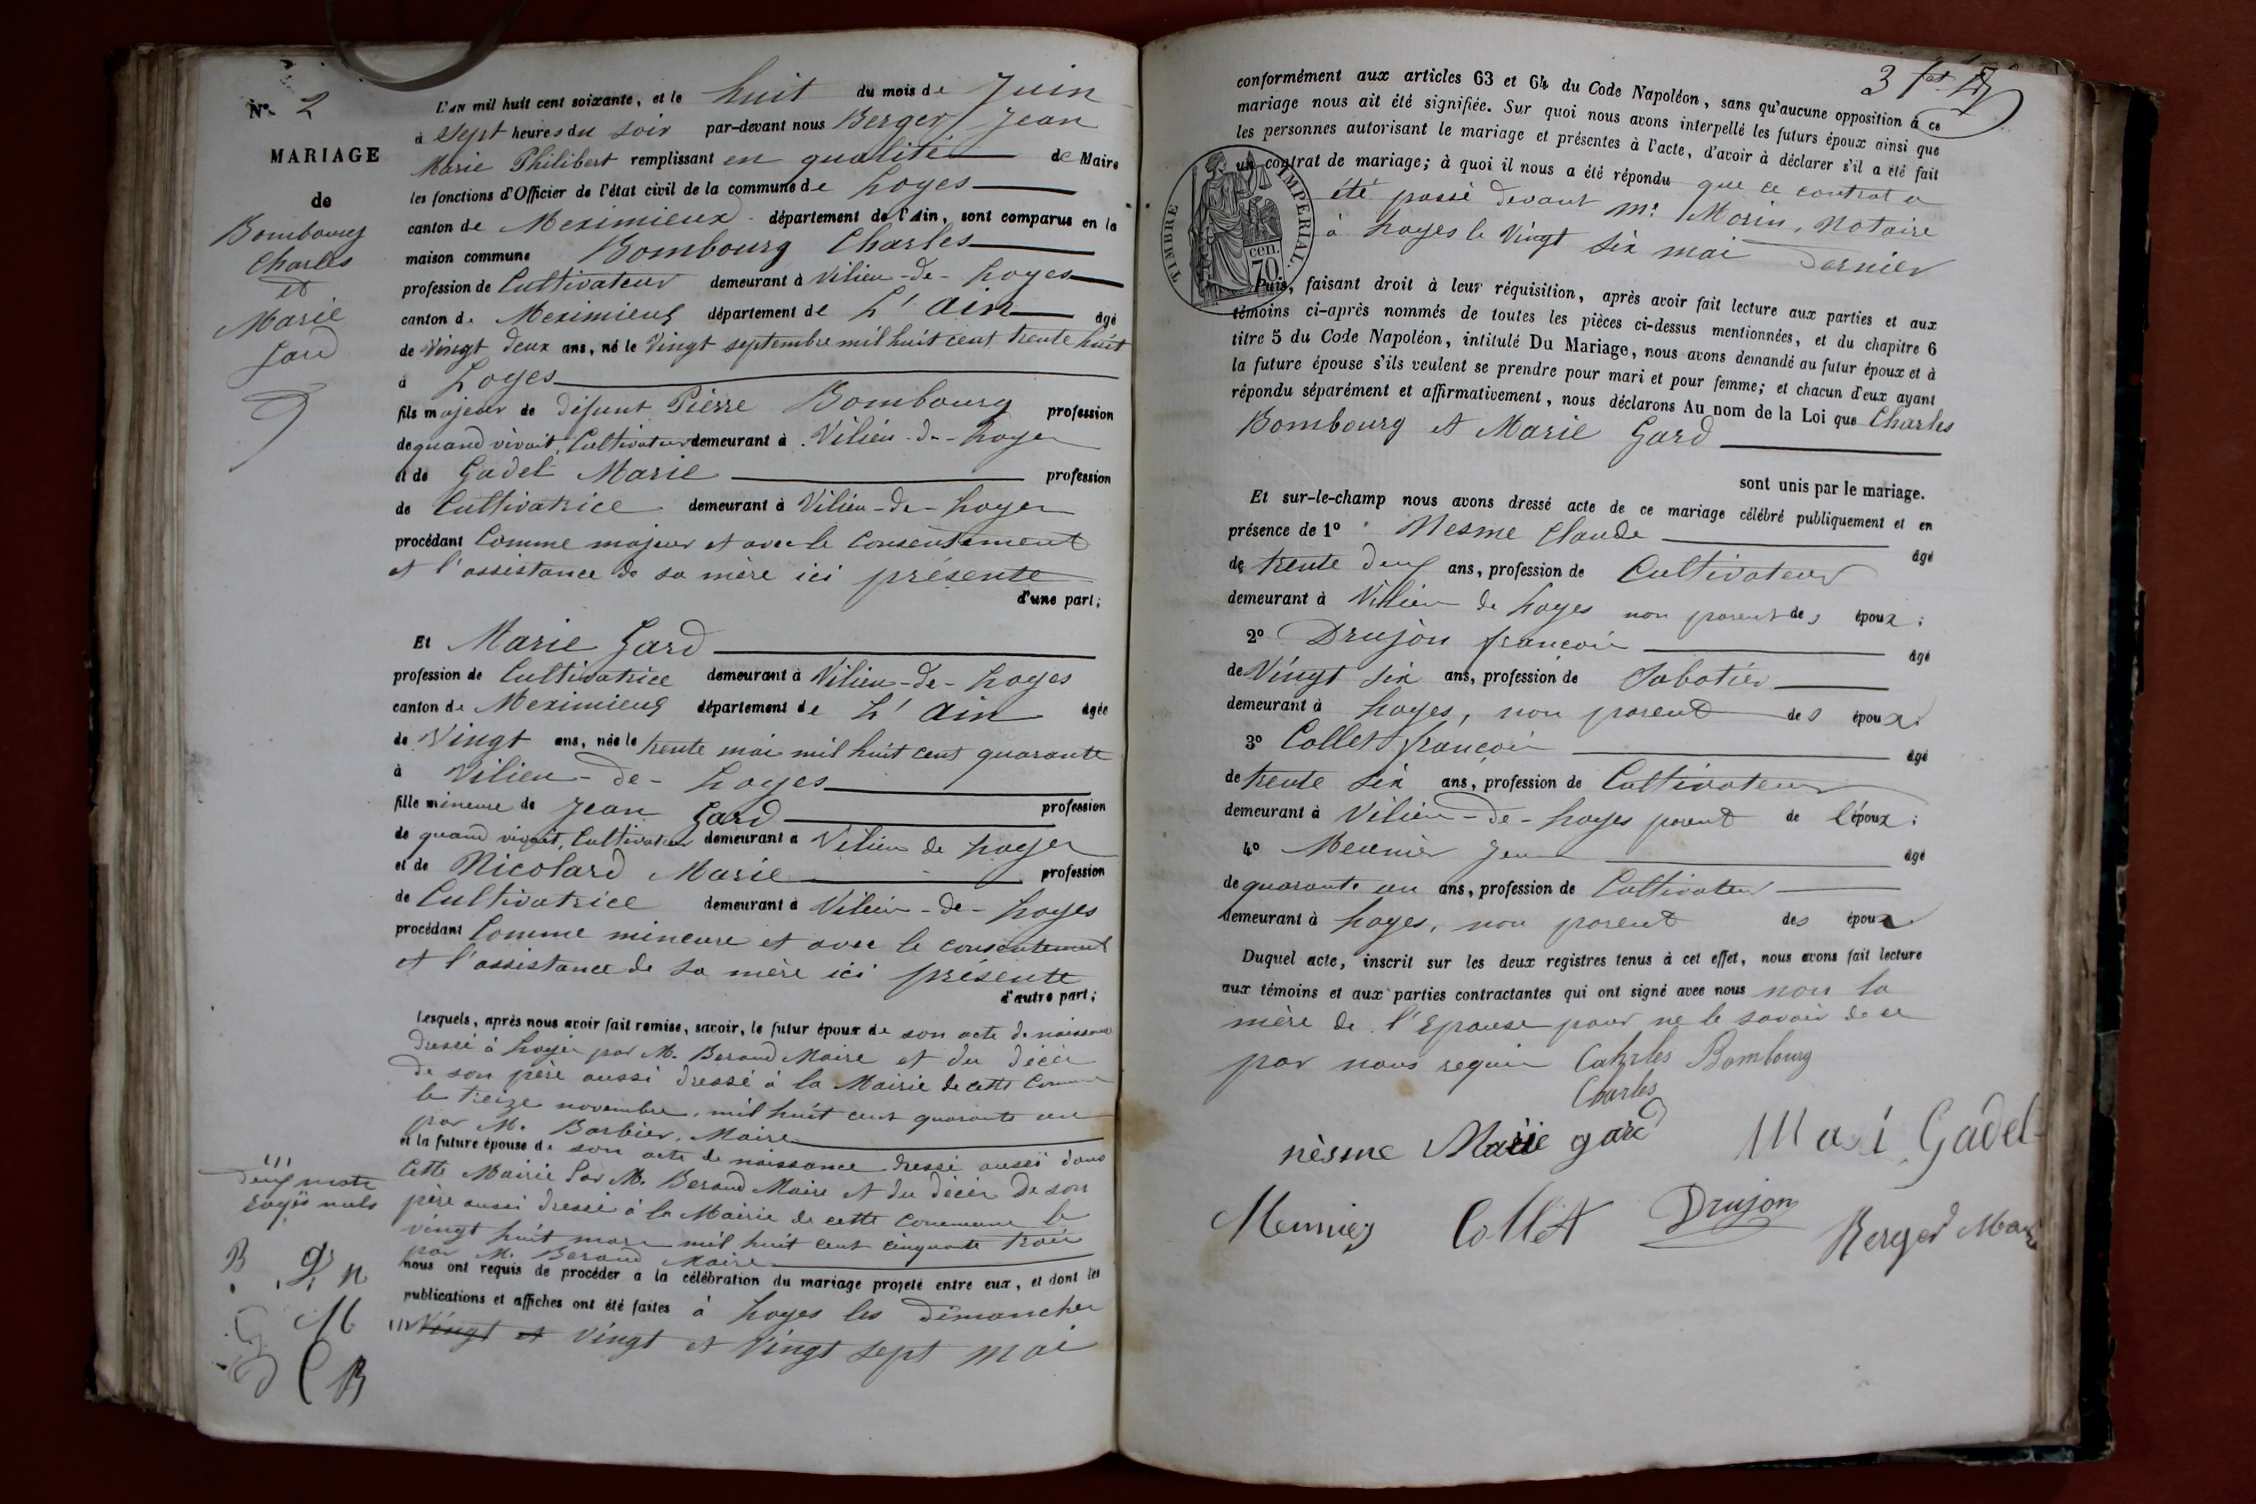 N.º 2
MARIAGE
de
Bombourg
Charles
et
Marie
Gard
L'AN mil huit cent soixante, et le huit du mois de Juin
à sept heures du soir par-devant nous Berger Jean
Marie Philibert remplissant en qualité de Maire
les fonctions d'Officier de l'état civil de la commune de Loyes
canton de Meximieux département de l'Ain, sont comparus en la
maison commune Bombourg Charles
profession de Cultivateur demeurant à Vilieu-de-Loyes
canton de Meximieux département de L'Ain âgé
de Vingt deux ans, né le Vingt septembre mil huit cent trente huit
à Loyes
fils majeur de défunt Pierre Bombourg profession
de quand vivait, Cultivateur demeurant à Vilieu-de-Loyes
et de Gadet Marie profession
de Cultivatrice demeurant à Vilieu-de-Loyes
procédant Comme majeur et avec le consentement
et l'assistance de sa mère ici présente
d'une part;
Et Marie Gard
profession de Cultivatrice demeurant à Vilieu-de-Loyes
canton de Meximieux département de L'Ain âgée
de Vingt ans, née le trente mai mil huit cent quarante
à Vilieu-de-Loyes
fille mineure de Jean Gard profession
de quand vivait, Cultivateur demeurant à Vilieu de Loyes
et de Nicolard Marie profession
de Cultivatrice demeurant à Vilieu-de-Loyes
procédant Comme mineure et avec le consentement
et l'assistance de sa mère ici présente
d'autre part;
Lesquels, après nous avoir fait remise, savoir, le futur époux de son acte de naissance
dressé à Loyes par M. Beraud Maire et du décès
de son père aussi dressé à la Mairie de cette Commune
le treize novembre mil huit cent quarante un
par M. Barbier, Maire
et la future épouse de son acte de naissance dressé aussi dans
Cette Mairie Par M. Beraud Maire et du décès de son
père aussi dressé à la Mairie de cette commune le
vingt huit mars mil huit cent cinquante trois
par M. Beraud Maire
nous ont requis de procéder à la célébration du mariage projeté entre eux, et dont les
publications et affiches ont été faites à Loyes les dimanches
(1) Vingt et Vingt et Vingt sept mai
(1)
deux mots
rayés nuls
B D. n
M
C B
3 fet
conformément aux articles 63 et 64 du Code Napoléon, sans qu'aucune opposition à ce
mariage nous ait été signifiée. Sur quoi nous avons interpellé les futurs époux ainsi que
les personnes autorisant le mariage et présentes à l'acte, d'avoir à déclarer s'il a été fait
un contrat de mariage; à quoi il nous a été répondu que ce contrat a
été passé devant Mr. Morin, Notaire
à Loyes le Vingt Six mai dernier
TIMBRE IMPÉRIAL.
70 cen.
Puis, faisant droit à leur réquisition, après avoir fait lecture aux parties et aux
témoins ci-après nommés de toutes les pièces ci-dessus mentionnées, et du chapitre 6
titre 5 du Code Napoléon, intitulé Du Mariage, nous avons demandé au futur époux et à
la future épouse s'ils veulent se prendre pour mari et pour femme; et chacun d'eux ayant
répondu séparément et affirmativement, nous déclarons Au nom de la Loi que Charles
Bombourg et Marie Gard
sont unis par le mariage.
Et sur-le-champ nous avons dressé acte de ce mariage célébré publiquement et en
présence de 1º Nesme Claude âgé
de trente deux ans, profession de Cultivateur
demeurant à Vilieu de Loyes non parent des époux;
2º Drujon françois âgé
de Vingt six ans, profession de Sabotier
demeurant à Loyes, non parent des époux.
3º Collet françois âgé
de trente six ans, profession de Cultivateur
demeurant à Vilieu-de-Loyes parent de l'époux;
4º Meunier Jean âgé
de quarante un ans, profession de Cultivateur
demeurant à Loyes, non parent des époux
Duquel acte, inscrit sur les deux registres tenus à cet effet, nous avons fait lecture
aux témoins et aux parties contractantes qui ont signé avec nous non la
mère de l'Epouse pour ne le savoir de ce
par nous requis Cahrles Bombourg
Charles
nèsme Marie gard Mari Gadet
Meunier Collet Drujon Berger Maire